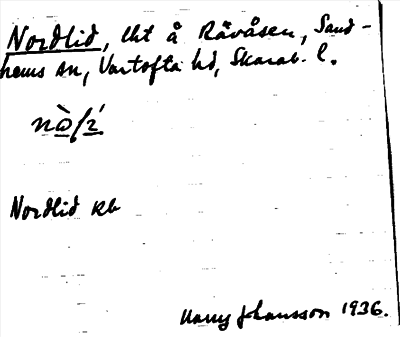 Nordlid, lht å Råvåsen, Sand-
hems sn, Vartofta hd, Skarab. l.
Nordlid kb
Harry Johansson 1936.